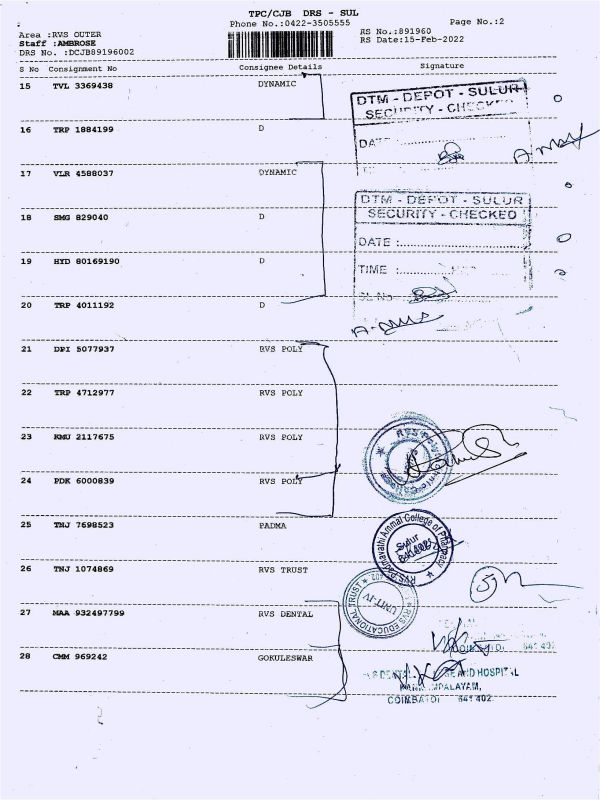 TPC/CJB DRS - SUL
Phone No.:0422-3505555 Page No.:2
Area :RVS OUTER RS No.:891960
Staff :AMBROSE RS Date:15-Feb-2022
DRS No. :DCJB89196002
S No Consignment No Consignee Details Signature
15 TVL 3369438 DYNAMIC
DTM - DEPOT - SULUR
SECURITY - CHECKED
16 TRP 1884199 D
17 VLR 4588037 DYNAMIC
DTM - DEPOT - SULUR
18 SMG 829040 D
SECURITY - CHECKED
DATE :
19 HYD 80169190 D
TIME :
SL No
20 TRP 4011192 D
21 DPI 5077937 RVS POLY
22 TRP 4712977 RVS POLY
23 KMU 2117675 RVS POLY
24 PDK 6000839 RVS POLY
25 TNJ 7698523 PADMA
RVS Padmavathi Ammal College of Pharmacy
Sulur
26 TNJ 1074869 RVS TRUST
RVS EDUCATIONAL TRUST
UNIT-IV
27 MAA 932497799 RVS DENTAL
641 402
28 CMM 969242 GOKULESWAR
AND HOSPITAL
PALAYAM,
641 402